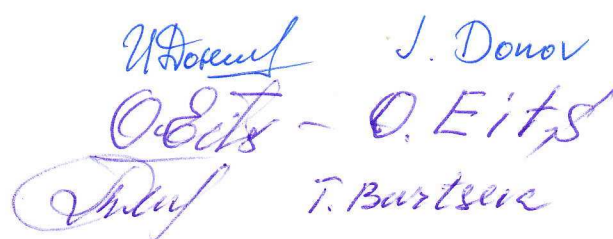 J. Donov
O. Eits – O. Eits
T. Burtseva